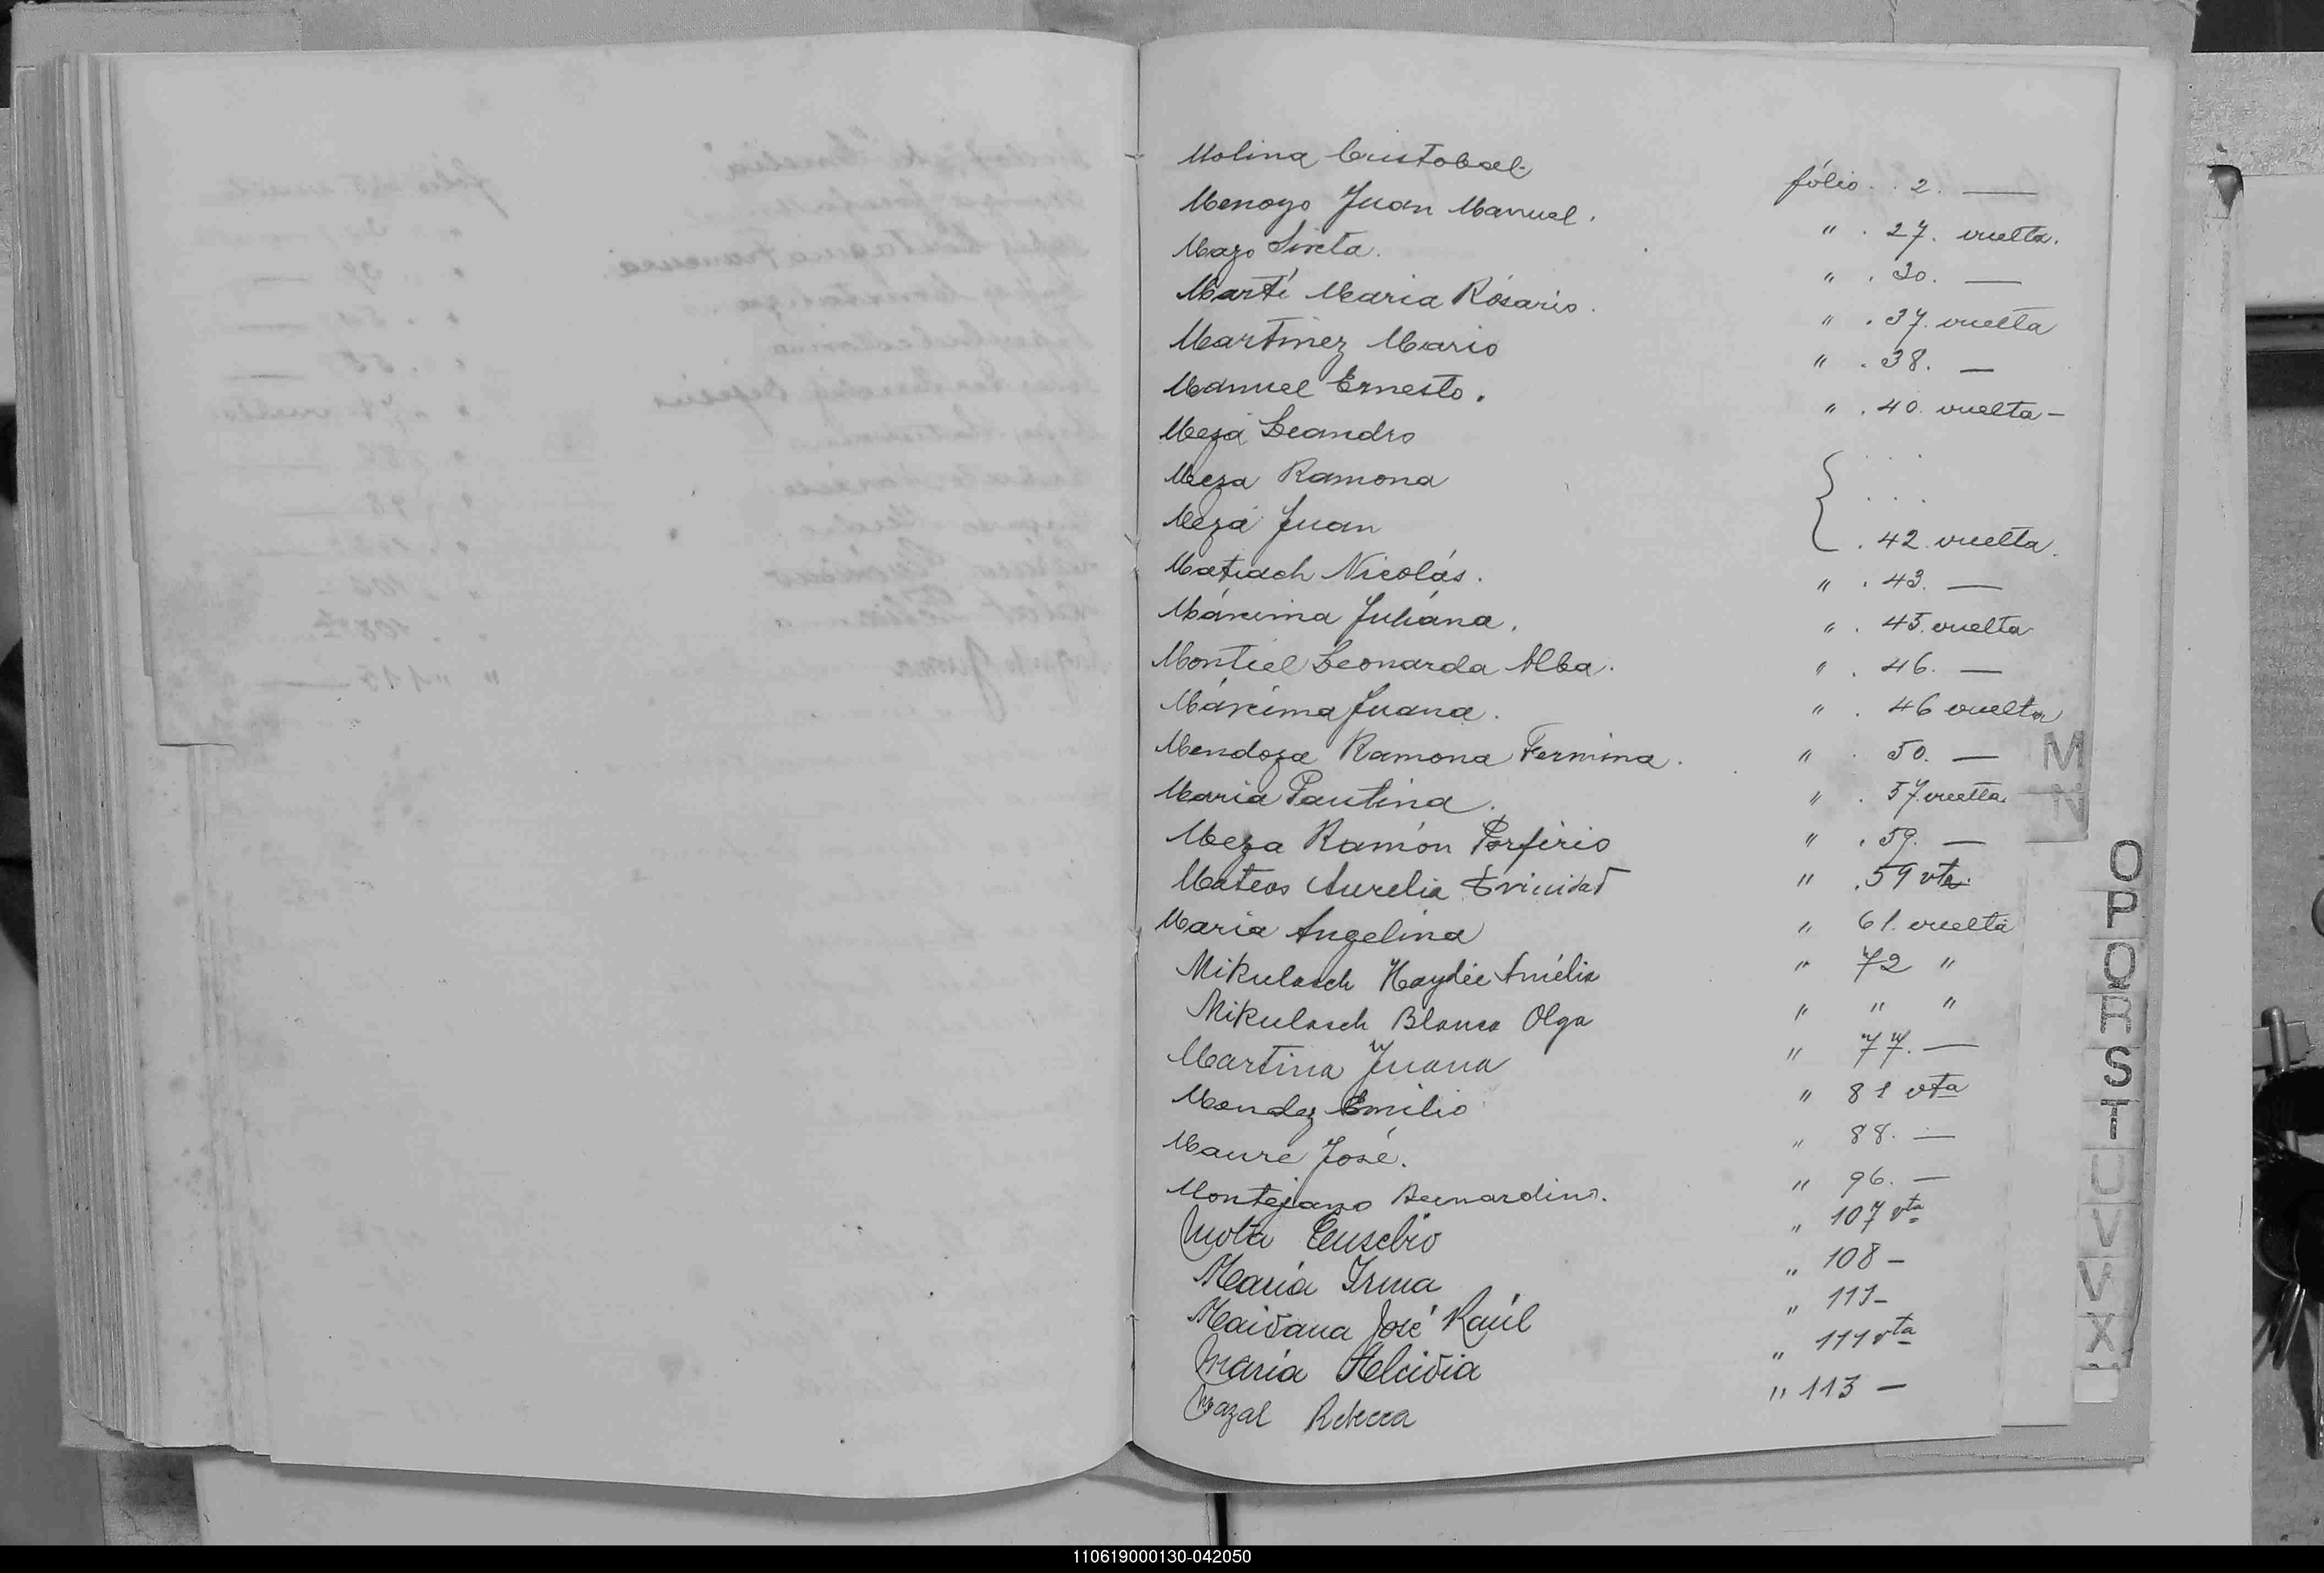 Molina Cristobal. fólio. . 2. —
Menoyo Juan Manuel. " . 27. vuelta.
Mazo Sixta. " . 30. —
Martí Maria Rosario. " . 37. vuelta
Martinez Mario " . 38. —
Manuel Ernesto. " . 40. vuelta —
Meza Leandro . . .
Meza Ramona . . .
Meza Juan . 42. vuelta.
Matiach Nicolás. " . 43. —
Máxima Juliana. " . 45. vuelta
Montiel Leonarda Alba. " . 46. —
Máxima Juana. " . 46 vuelta
Mendoza Ramona Fermina. " . 50. —
Maria Paulina. " . 57. vuelta.
Meza Ramón Porfirio " . 59. —
Mateos Aurelia Trinidad " . 59 vta.
Maria Angelina " 61. vuelta
Mikulasch Haydée Amélia " 72 "
Mikulasch Blanca Olga " " "
Martina Juana " 77. —
Mendez Emilio " 81 vta
Maure José. " 88. —
Montejano Bernardino. " 96. —
Mota Eusebio " 107 vta
María Irma " 108 —
Maidana José Raúl " 111 —
María Alcidia " 111 vta
Mazal Rebeca " 113 —
M
N
O
P
Q
R
S
T
U
V
V
X
110619000130-042050